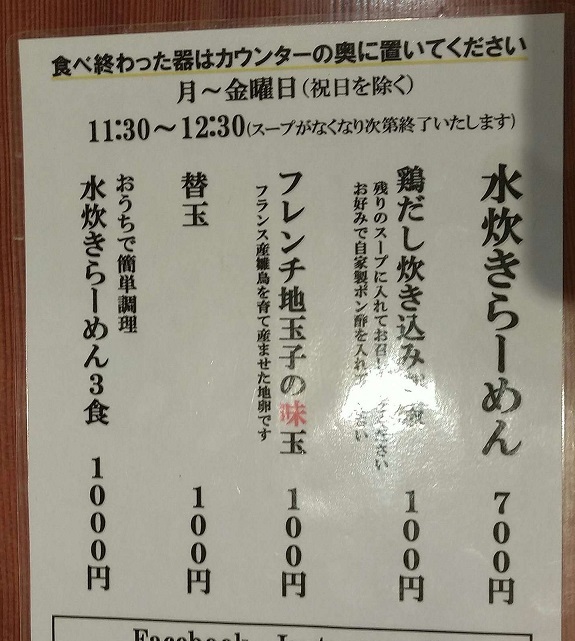 食べ終わった器はカウンターの奥に置いてください
月～金曜日(祝日を除く)
11:30～12:30(スープがなくなり次第終了いたします)
水炊きらーめん 700円
鶏だし炊き込み 100円
残りのスープに入れてお召し ください
お好みで自家製ポン酢を入れて さい
フレンチ地玉子の味玉 100円
フランス産雛鳥を育て産ませた地卵です
替玉 100円
おうちで簡単調理
水炊きらーめん3食 1000円
Facebook